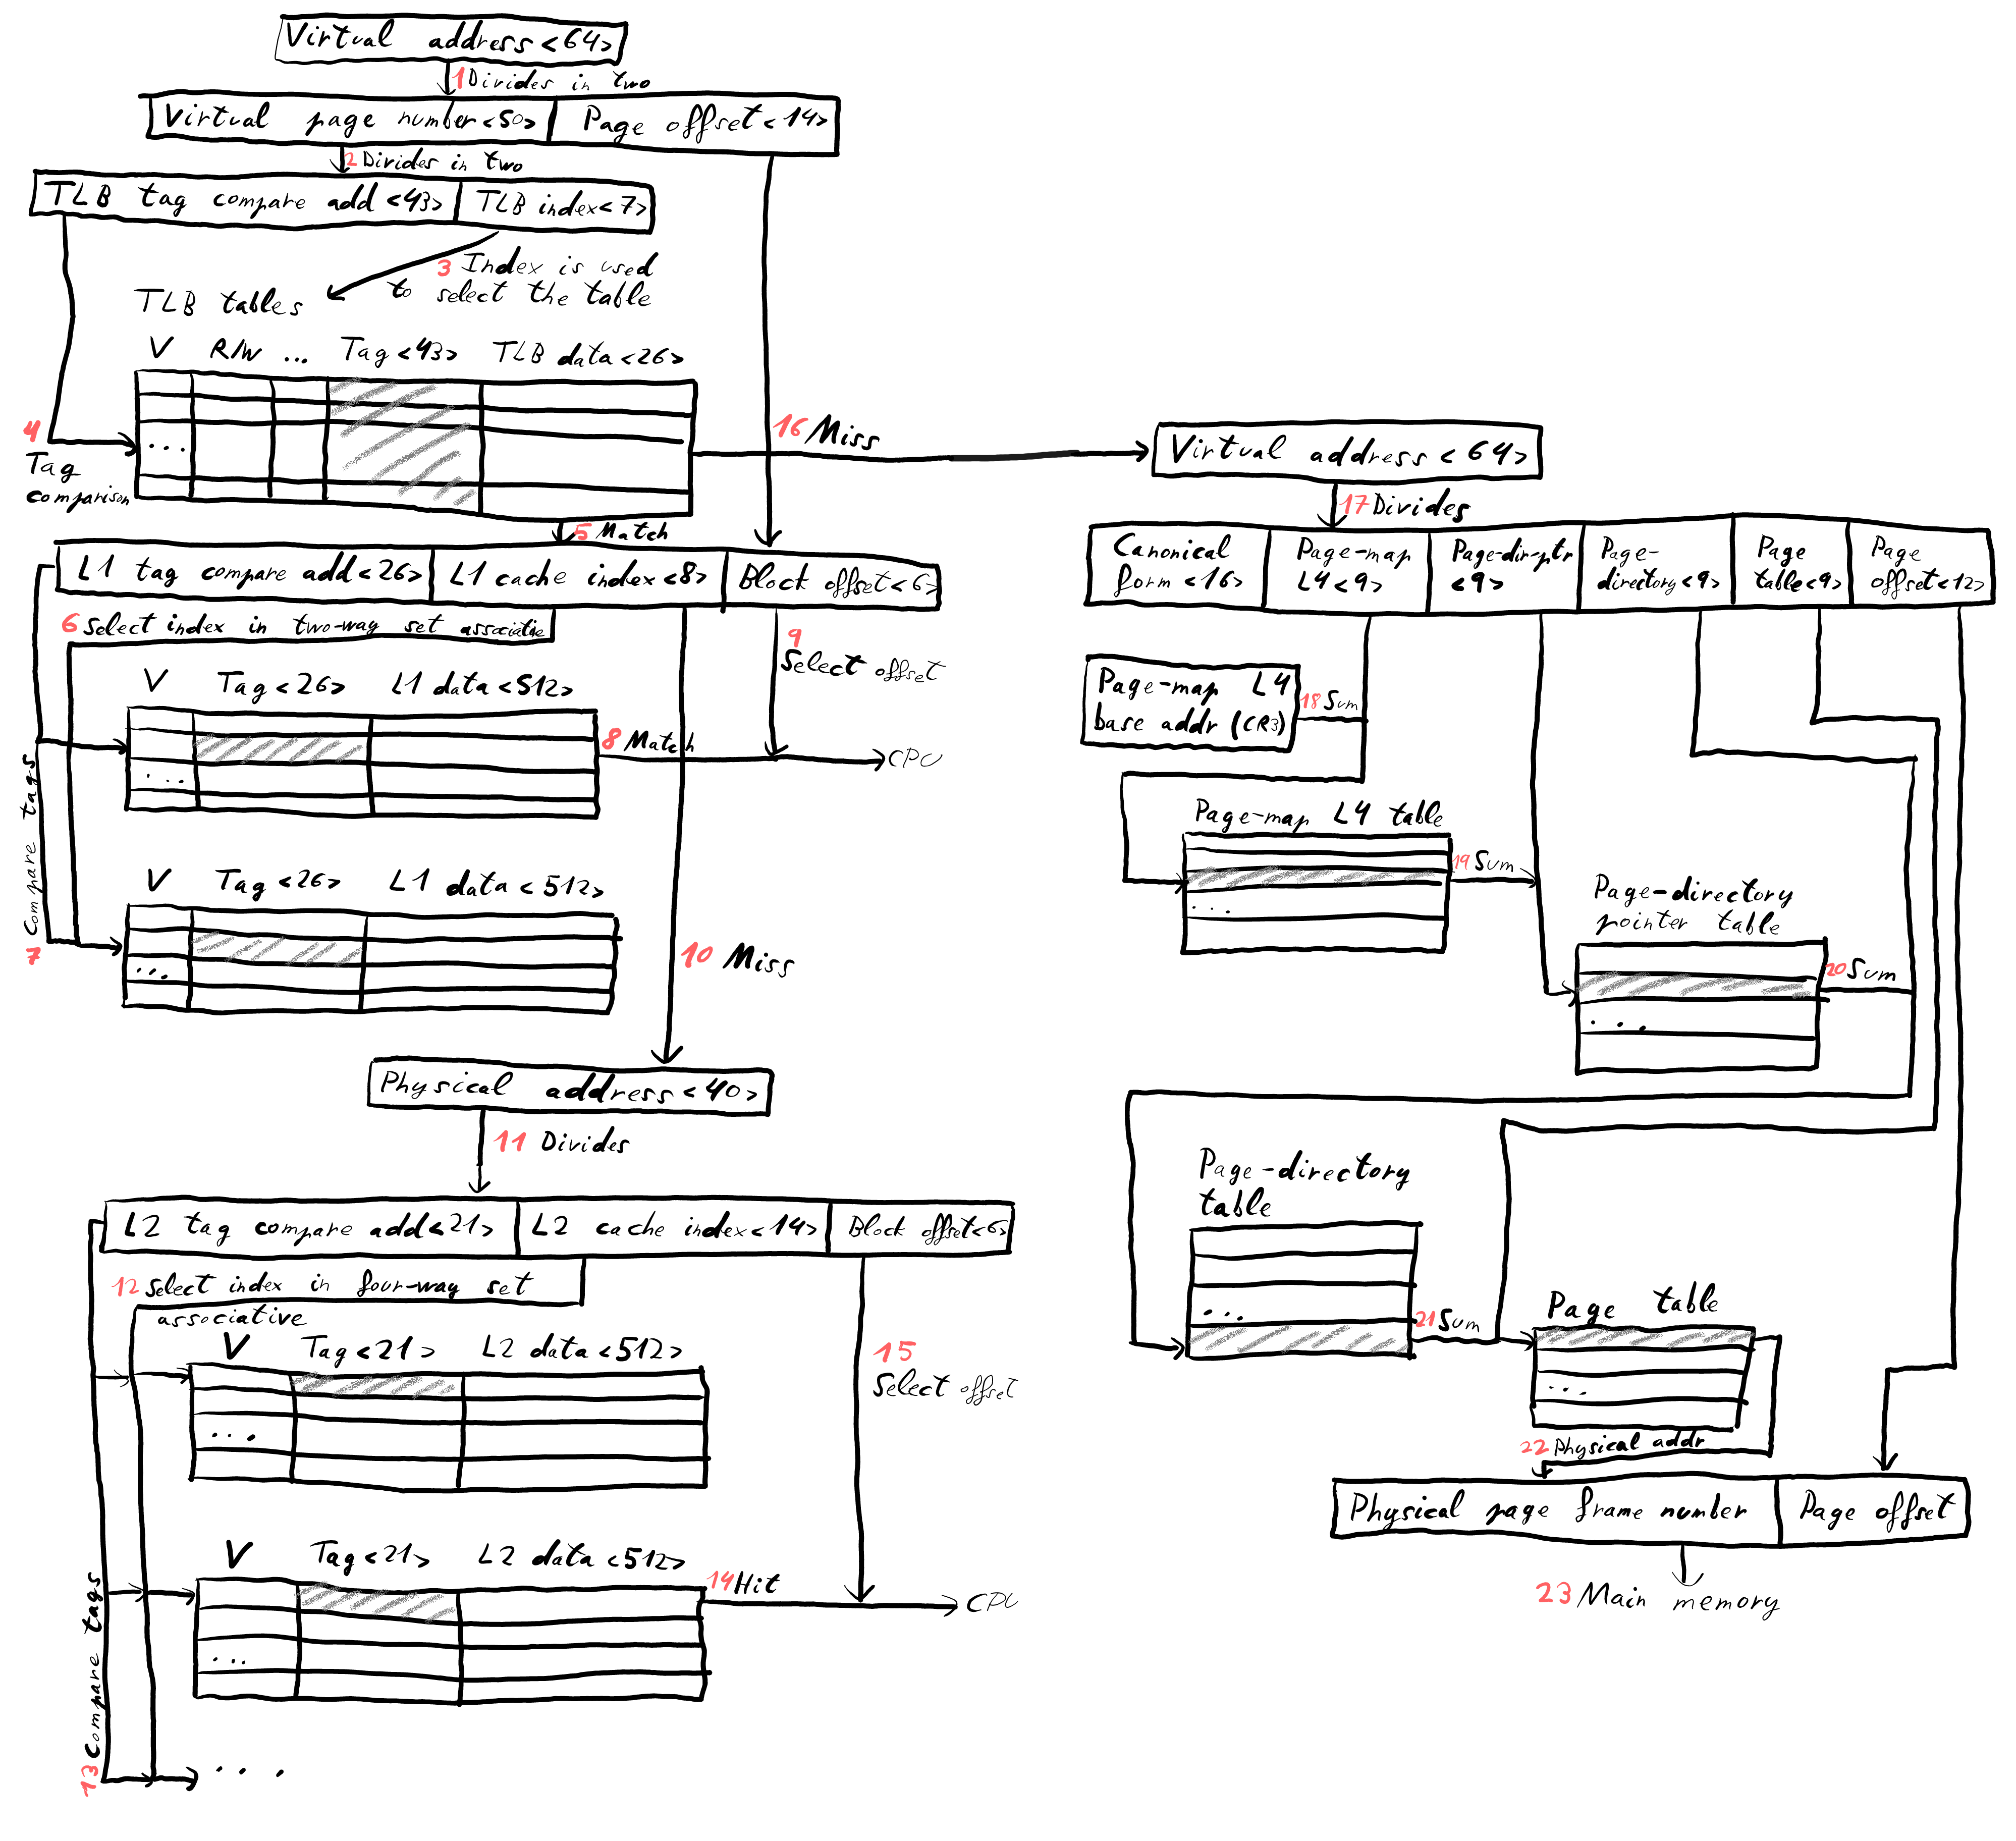 Virtual address<64>
1 Divides in two
Virtual page number<50> Page offset<14>
2 Divides in two
TLB tag compare add<43> TLB index<7>
3 Index is used
to select the table
TLB tables
V R/W ... Tag<43> TLB data<26>
...
4
Tag
comparison
5 Match
16 Miss
L1 tag compare add<26> L1 cache index<8> Block offset<6>
6 Select index in two-way set associative
9
Select offset
V Tag<26> L1 data<512>
...
8 Match
CPU
V Tag<26> L1 data<512>
...
7 Compare tags
10 Miss
Physical address<40>
11 Divides
L2 tag compare add<21> L2 cache index<14> Block offset<6>
12 Select index in four-way set
associative
V Tag<21> L2 data<512>
...
15
Select offset
V Tag<21> L2 data<512>
...
14 Hit
CPU
13 Compare tags
...
Virtual address<64>
17 Divides
Canonical
form<16>
Page-map
L4<9>
Page-dir-ptr
<9>
Page-
directory<9>
Page
table<9>
Page
offset<12>
Page-map L4
base addr (CR3)
18 Sum
Page-map L4 table
...
19 Sum
Page-directory
pointer table
...
20 Sum
Page-directory
table
...
21 Sum
Page table
...
22 Physical addr
Physical page frame number Page offset
23 Main memory